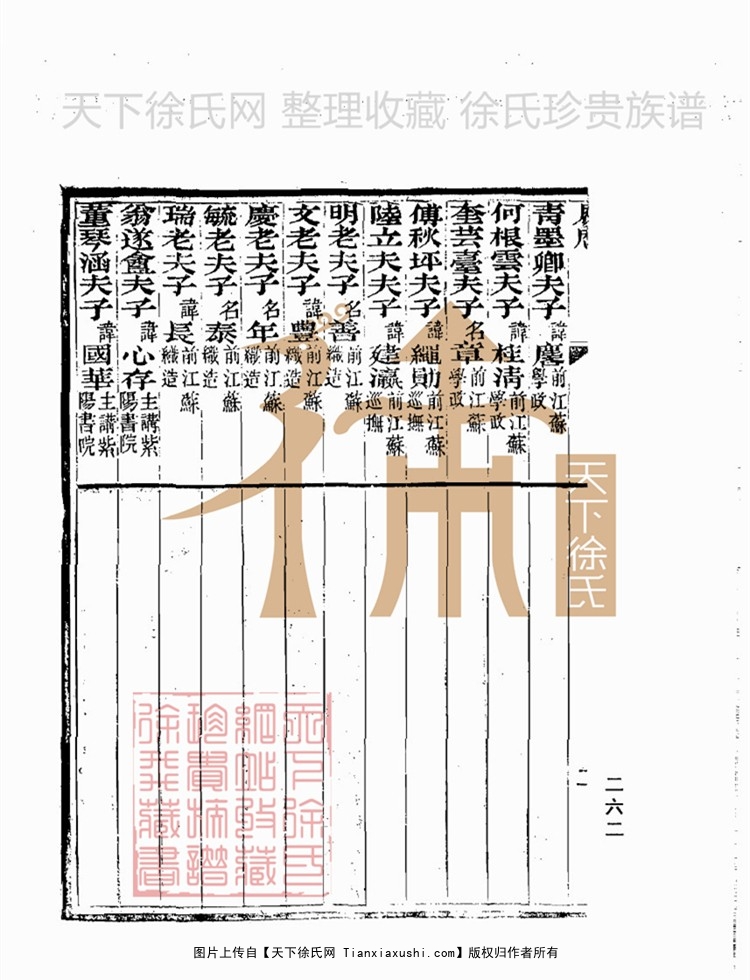 天下徐氏网 整理收藏 徐氏珍贵族谱
青墨卿夫子 諱麐 前江蘇學政
何根雲夫子 諱桂清 前江蘇學政
奎芸臺夫子 名章 前江蘇學政
傅秋坪夫子 諱繩勛 前江蘇巡撫
陸立夫夫子 諱建瀛 前江蘇巡撫
明老夫子 名善 前江蘇織造
文老夫子 諱豐 前江蘇織造
慶老夫子 名年 前江蘇織造
毓老夫子 名泰 前江蘇織造
瑞老夫子 諱長 前江蘇織造
翁遂盦夫子 諱心存 主講紫陽書院
董琴涵夫子 諱國華 主講紫陽書院
天下徐氏
二六二
天下徐氏
網站收藏
珍貴族譜
徐我藏書
图片上传自【天下徐氏网 Tianxiaxushi.com】版权归作者所有